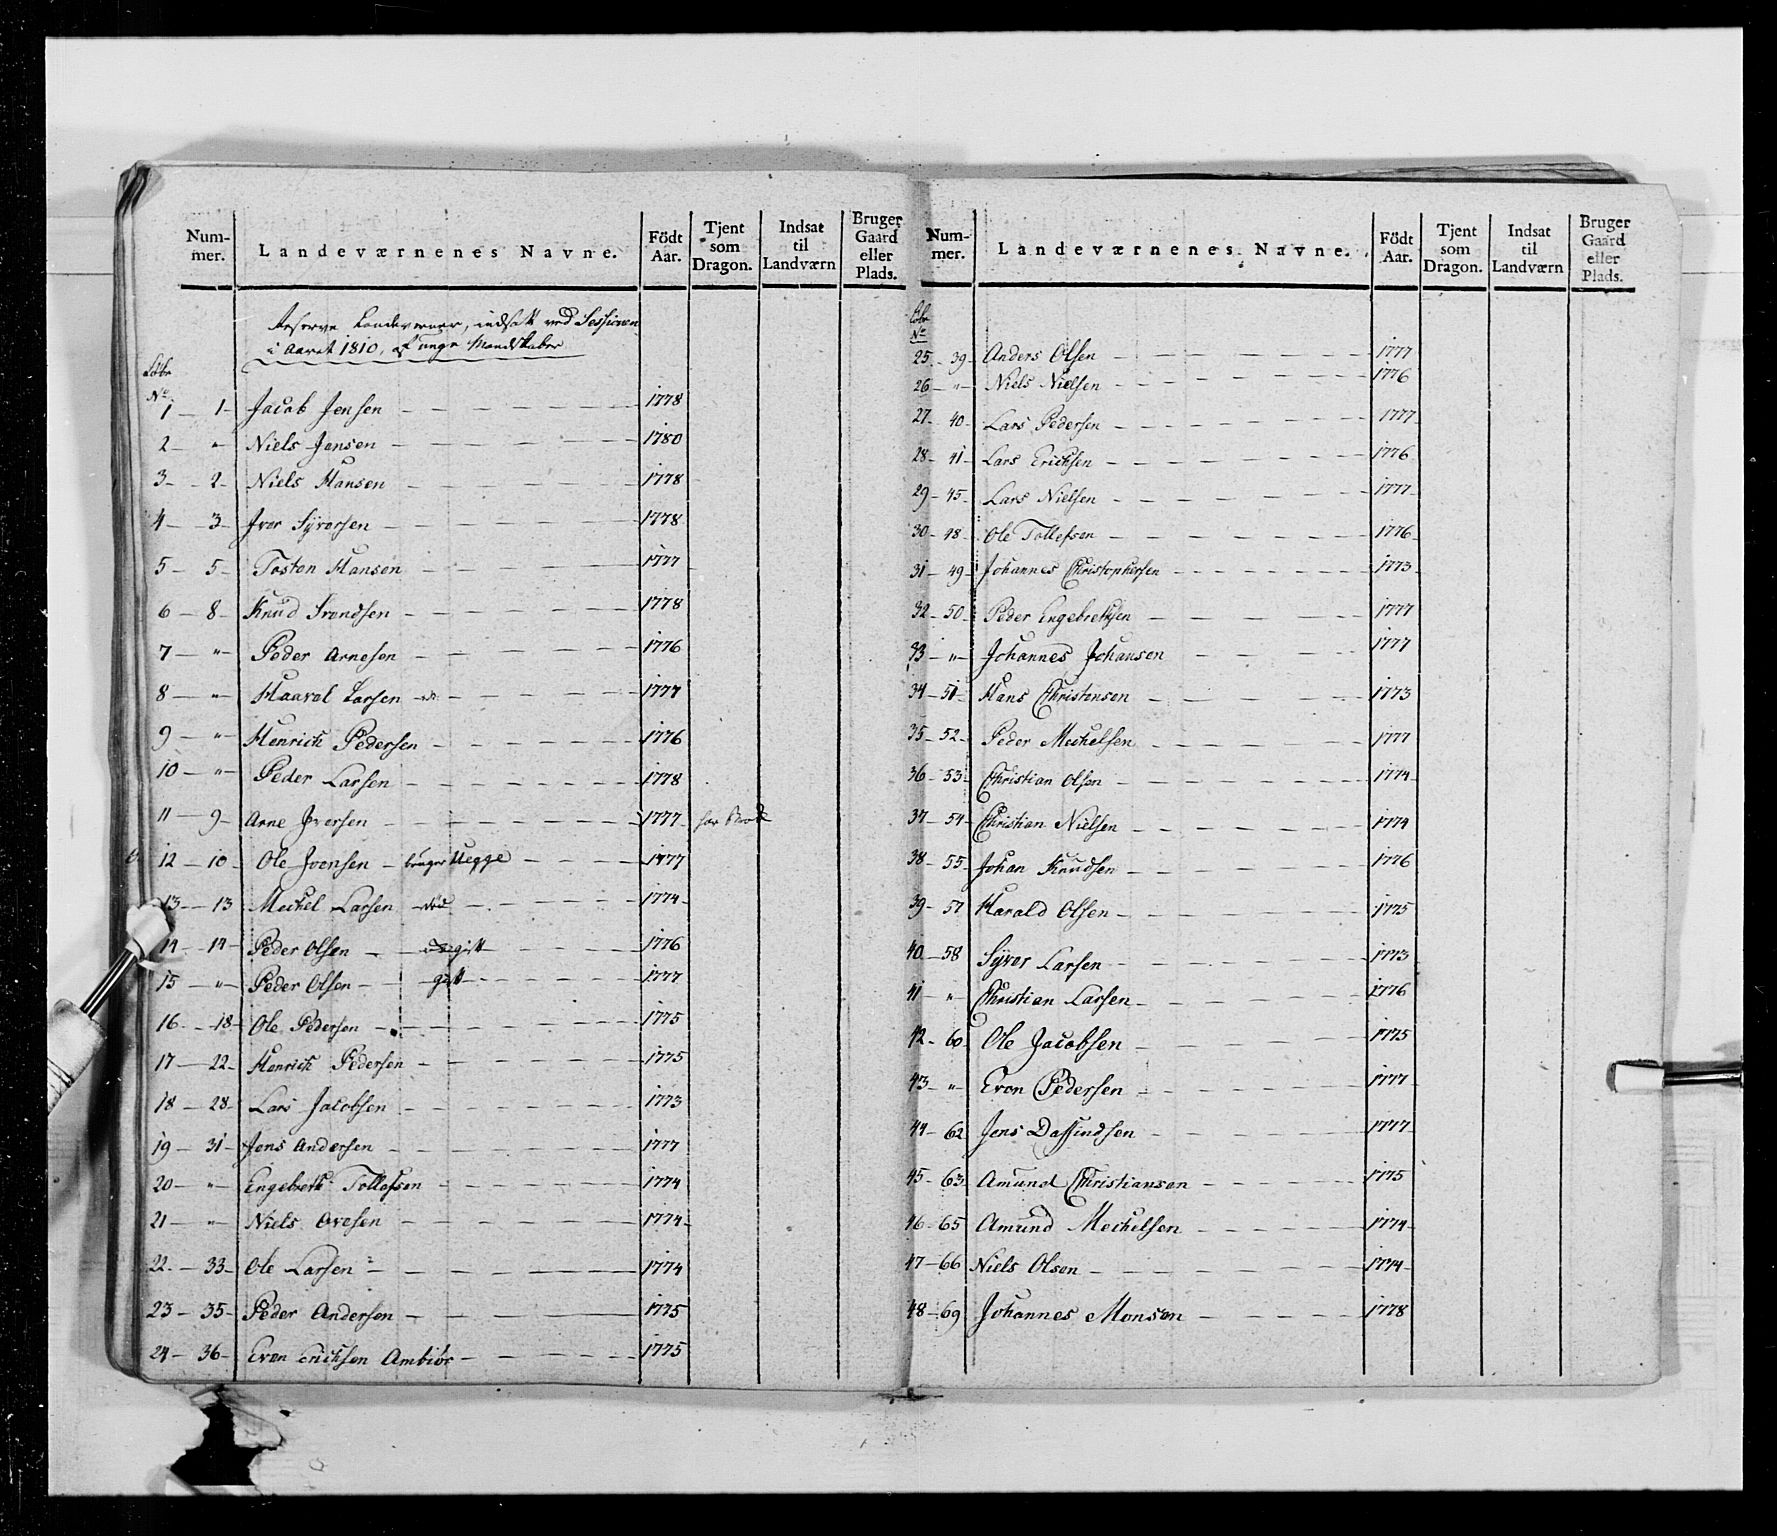 Num-mer. Landeværnenes Navne. Födt Aar. Tjent som Dragon. Indsat til Landværn Bruger Gaard eller Plads.
Reserve Landeverner, indsatt ved Sessionen
i Aaret 1810, unge Mandskaber
Löbe
No.
1 — 1 — Jacob Jensen — 1778
2 — " Niels Jensen — 1780
3 — 2 — Niels Hansen — 1778
4 — 3 — Iver Syversen — 1778
5 — 5 — Tosten Hansen — 1777
6 — 8 — Knud Svendsen — 1778
7 — " — Peder Arnesen — 1776
8 — " — Haavel Larsen — 1777
9 — " — Henrich Pedersen — 1776
10 — " — Peder Larsen — 1778
11 — 9 — Arne Iversen — 1777
12 — 10 — Ole Ivensen — bruger Uegge — 1777
13 — 13 Mechel Larsen — död — 1774
14 — 14 — Peder Olsen — gift 1776
15 — " — Peder Olsen — gift — 1777
16 — 18 — Ole Pedersen — 1775
17 — 22 — Henrich Pedersen — 1775
18 — 28 — Lars Jacobsen — 1773
19 — 31 — Jens Andersen — 1777
20 — " — Engebreth Tollefsen — 1774
21 — " — Niels Ovesen — 1774
22 — 33 — Ole Larsen — 1774
23 — 35 — Peder Andersen — 1775
24 — 36 — Even Erichsen Ambiör — 1775
Num-mer. Landeværnenes Navne. Födt Aar. Tjent som Dragon. Indsat til Landværn Bruger Gaard eller Plads.
Löbe
No
25 — 39 — Anders Olsen — 1777
26 — " — Niels Nielsen — 1776
27 — 40 — Lars Pedersen — 1777
28 — 41 — Lars Erichsen — 1776
29 — 45 — Lars Nielsen — 1777
30 — 48 — Ole Tollefsen — 1776
31 — 49 — Johannes Christophersen — 1773
32 — 50 — Peder Engebrethsen — 1777
33 — " — Johannes Johansen — 1777
34 — 51 — Hans Christensen — 1773
35 — 52 — Peder Mechelsen — 1777
36 — 53 — Christian Olsen — 1774
37 — 54 — Christian Nielsen — 1774
38 — 55 — Johan Knudsen — 1776
39 — 57 — Harald Olsen — 1775
40 — 58 Syver Larsen — 1773
41 — " Christian Larsen — 1776
42 — 60 Ole Jacobsen — 1775
43 — " — Even Pedersen — 1777
44 — 62 Jens Dassindsen — 1777
45 — 63 Amund Christiansen — 1775
46 — 65 Amund Mechelsen — 1774
47 — 66 Niels Olsen — 1774
48 — 69 Johannes Monsen — 1778